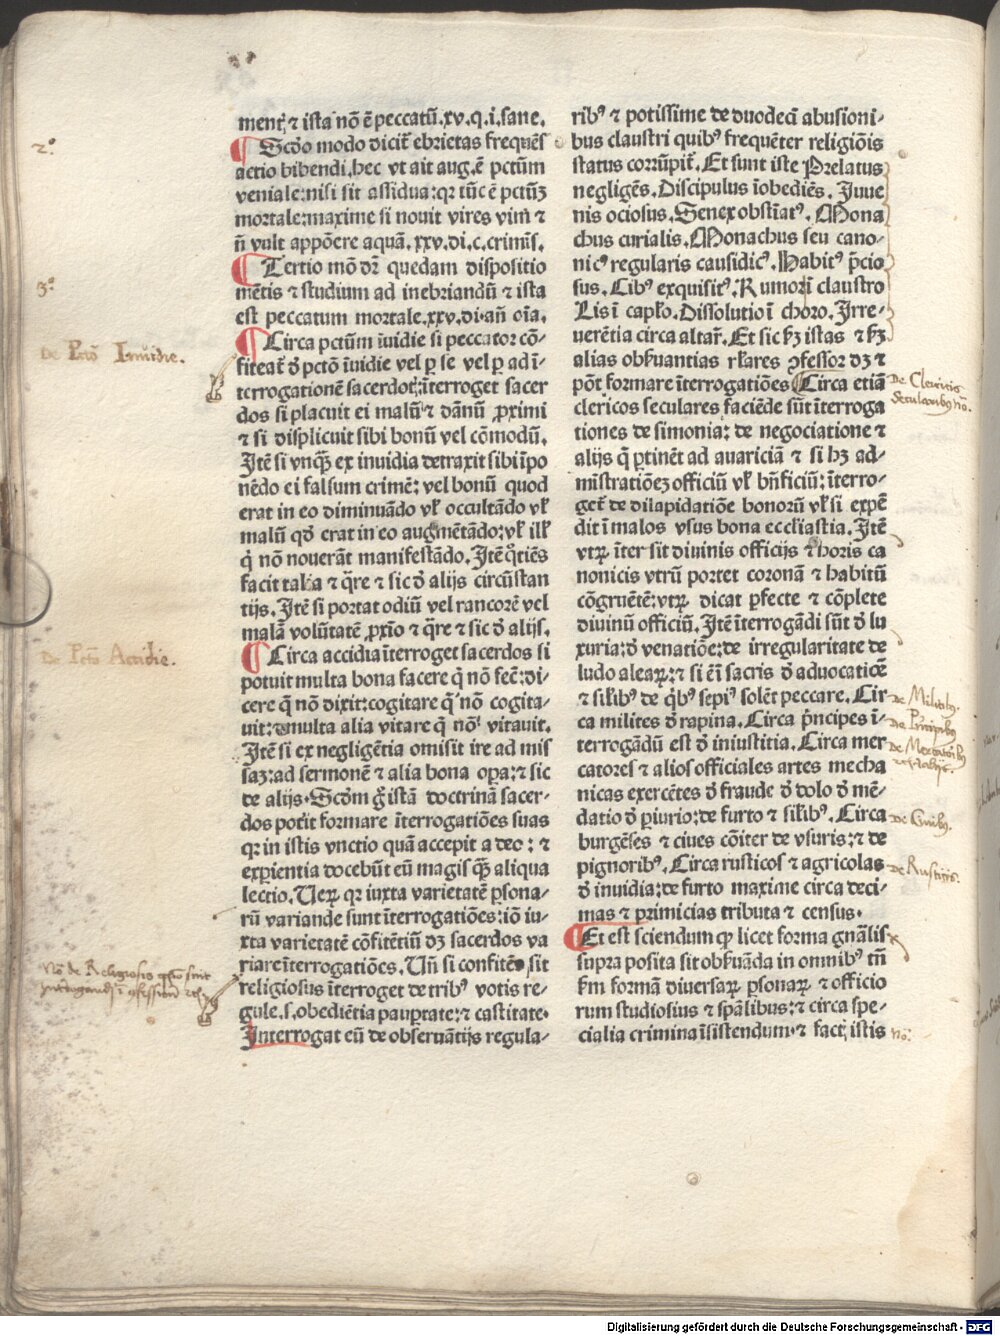 mentꝭ ⁊ ista nō ē peccatū.xv.q.i.sane.
¶ Scd̄o modo dicit͛ ebrietas frequēs
actio bibendi.hec vt ait aug.ē pctūm
veniale:nisi sit assidua:qꝛ tūc ē pctūꝫ
mortale:maxime si nouit vires vini ⁊
n̄ vult appōere aquā.xxv.di.c.crimīs.
¶ Tertio mō dꝛ̄ quedam dispositio
mētis ⁊ studium ad inebriandū ⁊ ista
est peccatum mortale.xxv.di.an̄ oīa.
¶ Circa pctūm īuidie si peccator cō-
fiteat͛ ꝺ̄ pctō īuidie vel ꝑ se vel ꝑ ad ī-
terrogationē sacerdotꝭ:īterroget sacer
dos si placuit ei malū ⁊ dānū ꝓximi
⁊ si displicuit sibi bonū vel cōmodū.
Itē si vnqꝫ̄ ex inuidia detraxit sibi īpo
nēdo ei falsum crimē: vel bonū quod
erat in eo diminuādo vl̄ occultādo vl̄
malū qd̄ erat in eo augmētādo:vl̄ ill̄
q̇ nō nouerāt manifestādo.Itē q͛tiēs
facit talia ⁊ q̄re ⁊ sic ꝺ̄ alijs circūstan
tijs. Itē si portat odiū vel rancorē vel
malā volūtatē ꝓxīo ⁊ q̄re ⁊ sic ꝺ̄ alijs.
¶ Circa accidia īterroget sacerdos si
potuit multa bona facere q̄ nō fec͛:di-
cere q̄ nō dixit:cogitare q̄ nō cogita-
uit:⁊ multa alia vitare q̄ nō vitauit.
Itē si ex negligētia omisit ire ad mis
saꝫ:ad sermonē ⁊ alia bona oꝑa:⁊ sic
de alijs.Scd̄m g̊ istā doctrinā sacer-
dos potit formare īterrogatiōes suas
qꝛ in istis vnctio quā accepit a deo: ⁊
exꝑientia docebūt eū magis qꝫ̄ aliqua
lectio. Ueꝝ qꝛ iuxta varietatē ꝑsona-
rū variande sunt īterrogatiōes:iō iu-
xta varietatē cōfitētiū dꝫ sacerdos va
riare īterrogatiōes. Un̄ si confitēs sit
religiosus īterroget de tribꝰ votis re-
gule.s.obediētia pauꝑtate:⁊ castitate.
Interrogat eū de obseruātijs regula-
ribꝰ ⁊ potissime de duodeci abusioni-
bus claustri quibꝰ frequēter religiōis
status corrūpit͛. Et sunt iste Prelatus
negligēs.Discipulus īobediēs. Iuue
nis ociosus.Senex obstīatꝰ. Mona
chus curialis.Monachus seu cano-
nicꝰ regularis causidicꝰ.Habitꝰ p̄cio
sus.Cibꝰ exquisitꝰ. Rumori claustro
Lis ī capl̄o. Dissolutio ī choro. Irre-
uerētia circa altar͛. Et sic hꝫ istas ⁊ hꝫ
alias obẜuantias rl̄ares ꝯfessor dꝫ ⁊
pōt formare īterrogatiōes ¶ Circa etiā
clericos seculares faciēde sūt īterroga
tiones de simonia: de negociatione ⁊
alijs q̄ ꝑtinēt ad auariciā ⁊ si hꝫ ad-
mīstratiōeꝫ officiū vl̄ bn̄ficiū: īterro-
get͛ de dilapidatiōe bonorū vl̄ si expē
dit ī malos vsus bona eccl̄iastia. Itē
vtꝝ īter sit diuinis officijs ⁊ horis ca
nonicis vtrū portet coronā ⁊ habitū
cōgruētē:vtꝝ dicat ꝑfecte ⁊ cōplete
diuinū officiū. Itē īterrogādi sūt ꝺ̄ lu
xuria:ꝺ̄ venatiōe:de irregularitate de
ludo aleaꝝ:⁊ si ēi sacris ꝺ̄ aduocatiōe
⁊ sil̄ibꝰ de q̇bꝰ sepiꝰ solēt peccare. Cir
ca milites ꝺ̄ rapina. Circa pn̄cipes ī-
terrogādū est ꝺ̄ iniustitia. Circa mer
catores ⁊ alios officiales artes mecha
nicas exercētes ꝺ̄ fraude ꝺ̄ dolo ꝺ̄ mē-
datio ꝺ̄ ꝑiurio:de furto ⁊ sil̄ibꝰ. Circa
burgēses ⁊ ciues cōiter de vsuris:⁊ de
pignoribꝰ. Circa rusticos ⁊ agricolas
ꝺ̄ inuidia:de furto maxime circa deci-
mas ⁊ primicias tributa ⁊ census.
¶ Et est sciendum ꝙ licet forma gn̄alis
supra posita sit obẜuāda in omnibꝰ tn̄
ẜm formā diuersaꝝ ꝑsonaꝝ ⁊ officio
rum studiosius ⁊ sp̄alibus:⁊ circa spe-
cialia crimina īsistendum.⁊ factꝭ istis
2º.
3º.
De Pctō Inuidie.
De Pctō Accidie.
Nō de Religiosis
De Clericis
Secularibꝰ nō.
De Militibꝰ.
De Principibꝰ
De Mercatoribꝰ
De Ciuibꝰ.
De Rusticis.
nō.
Digitalisierung gefördert durch die Deutsche Forschungsgemeinschaft - DFG